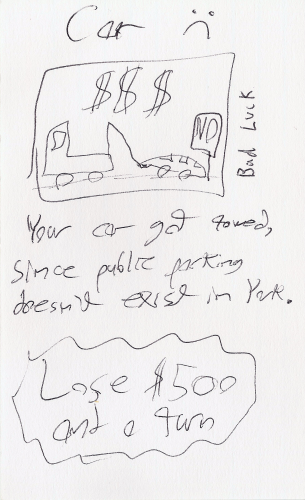 Car :(
$$$
Bad Luck
Your car got towed,
since public parking
doesn't exist in York.
Lose $500
and a turn